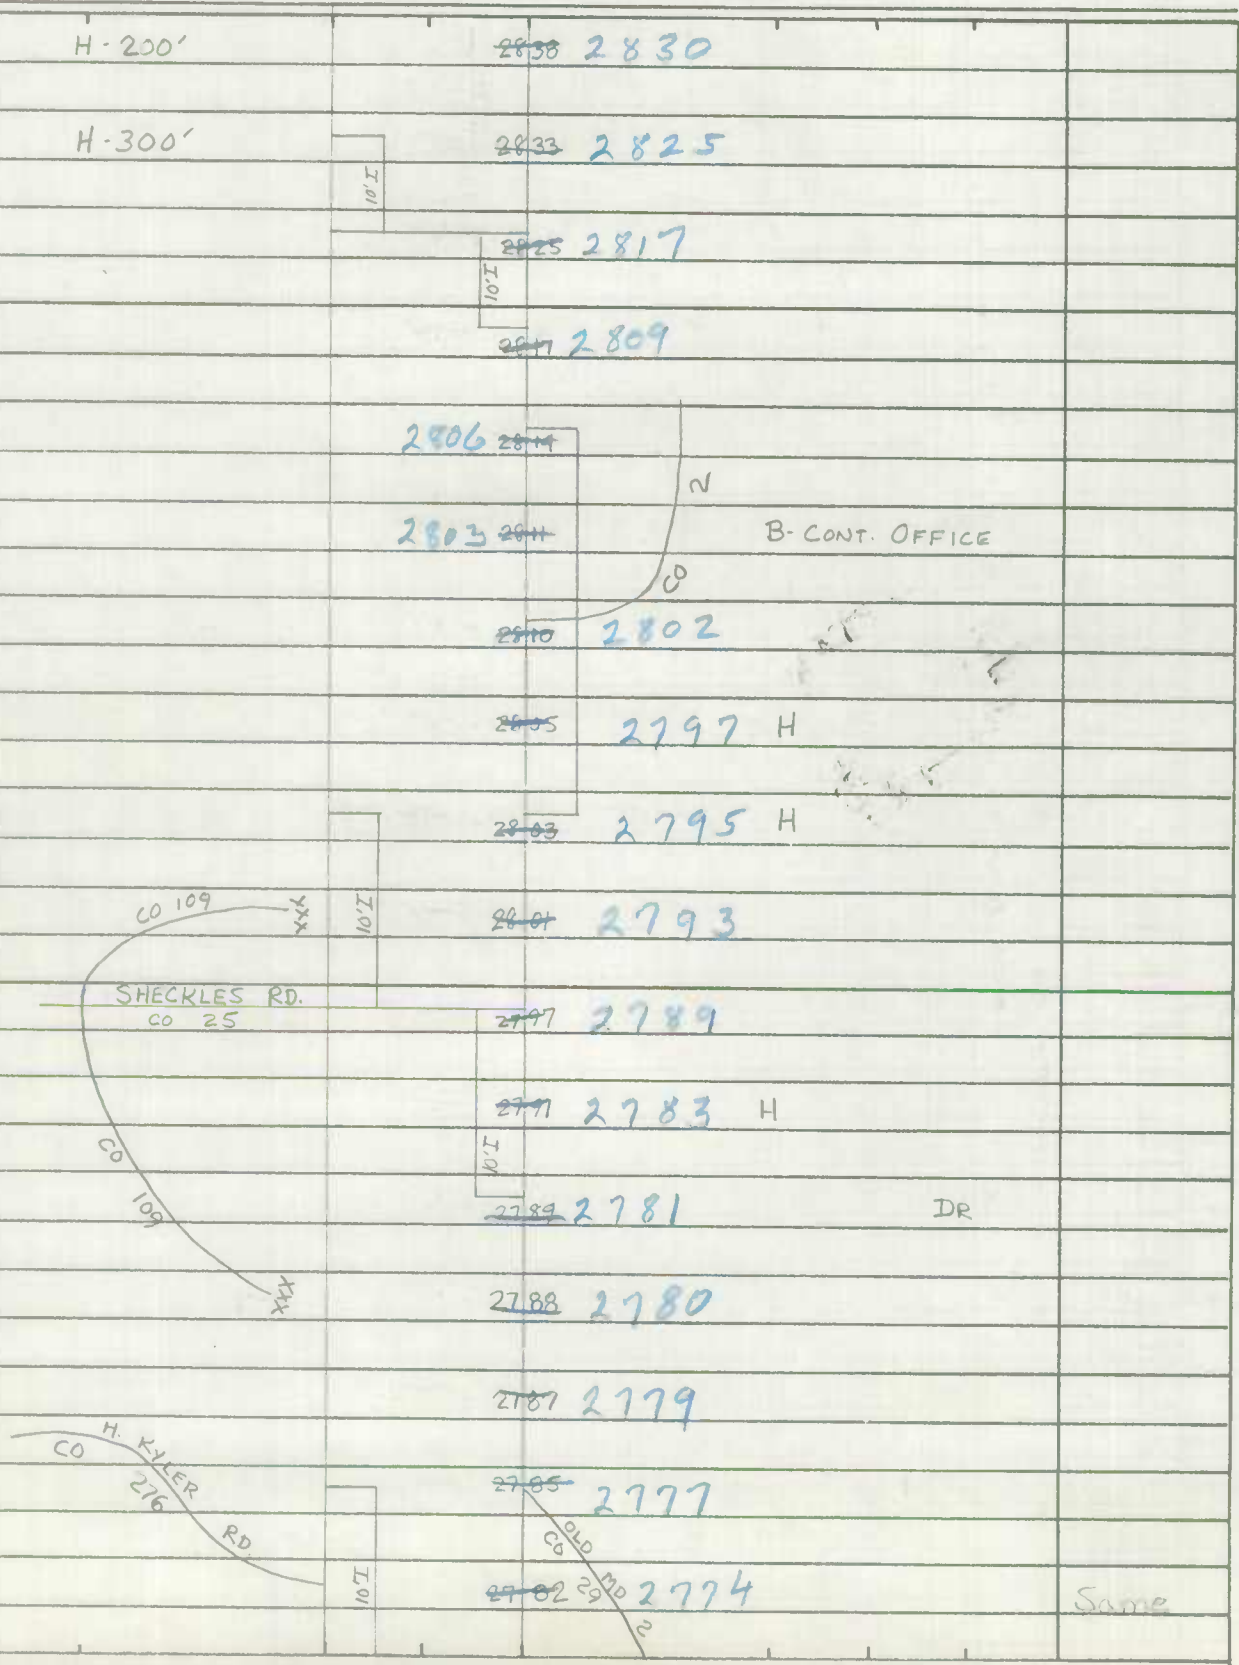 H - 200' 2838 2830
H - 300' 2833 2825
10' I
2825 2817
10' I
2817 2809
2806 2814
2
2803 2811 B- CONT. OFFICE
CO
2810 2802
2805 2797 H
2803 2795 H
CO 109 XXX 10' I 2801 2793
SHECKLES RD.
CO 25 2797 2789
2791 2783 H
CO 109 10' I
2789 2781 DR
XXX 2788 2780
2787 2779
CO 276 H. KYLER RD.
2785 2777
CO 29 OLD MD 2
10' I 2782 2774 Same